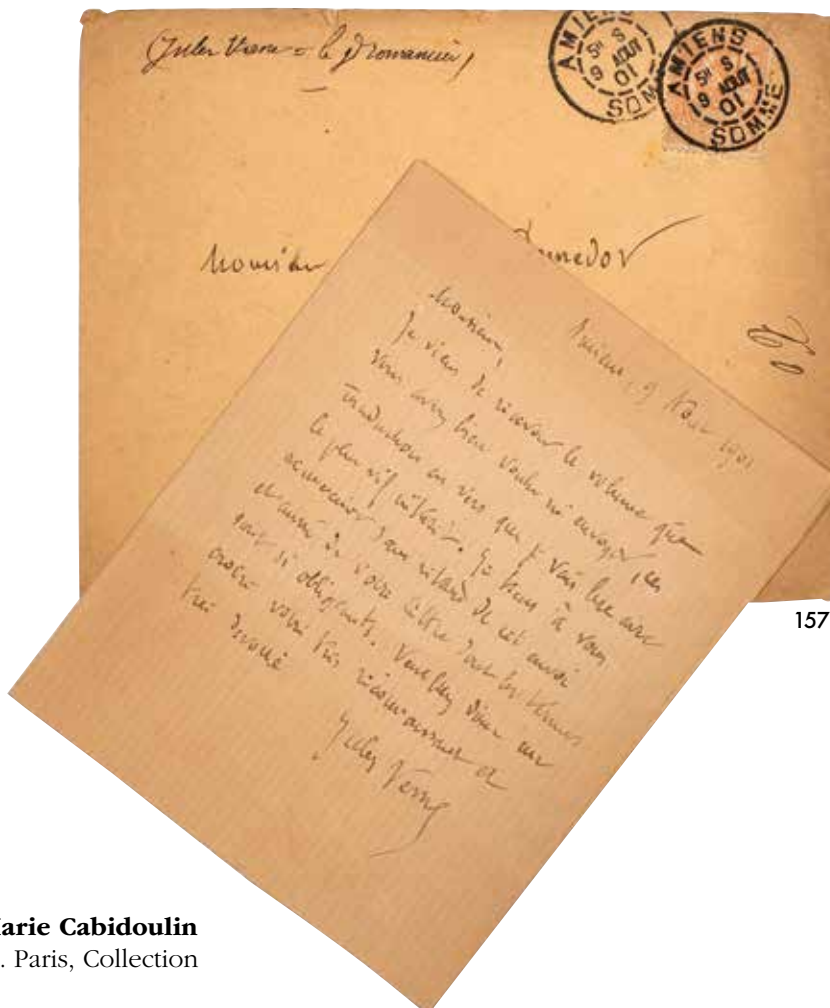 (Jules Verne = le gd romancier)
AMIENS
5E S
9 AOUT
01
SOMME
AMIENS
5E S
9 AOUT
01
SOMME
Monsieur
Amiens, 9 Août 1901
Monsieur,
Je viens de recevoir le volume que
vous avez bien voulu m'envoyer, en
traduction en vers que je vais lire avec
le plus vif intérêt. Je tiens à vous
remercier sans retard de cet envoi
et aussi de votre lettre dont les termes
sont si obligeants. Veuillez donc me
croire votre très reconnaissant et
très dévoué
Jules Verne
157
Marie Cabidoulin
. Paris, Collection